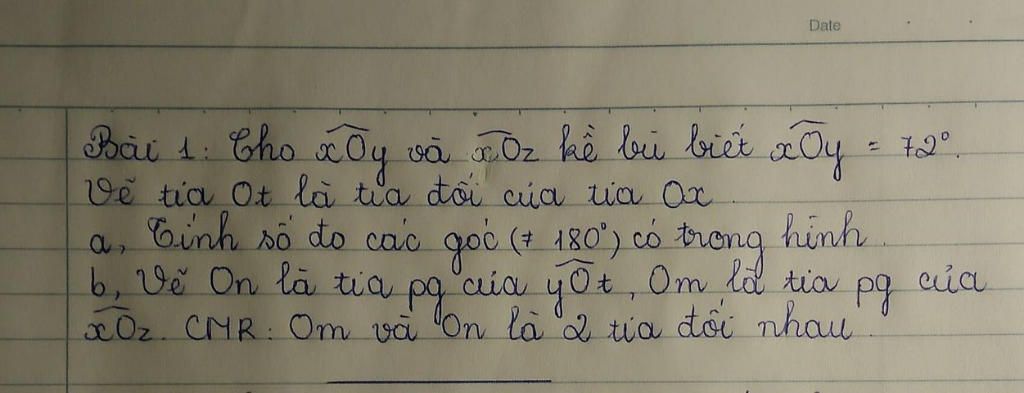 Date
Bài 1: Cho xOy và xOz kề bù biết xOy = 72°.
Vẽ tia Ot là tia đối của tia Ox.
a, Tính số đo các góc (≠ 180°) có trong hình.
b, Vẽ On là tia pg của yOt, Om là tia pg của
xOz. CMR: Om và On là 2 tia đối nhau.